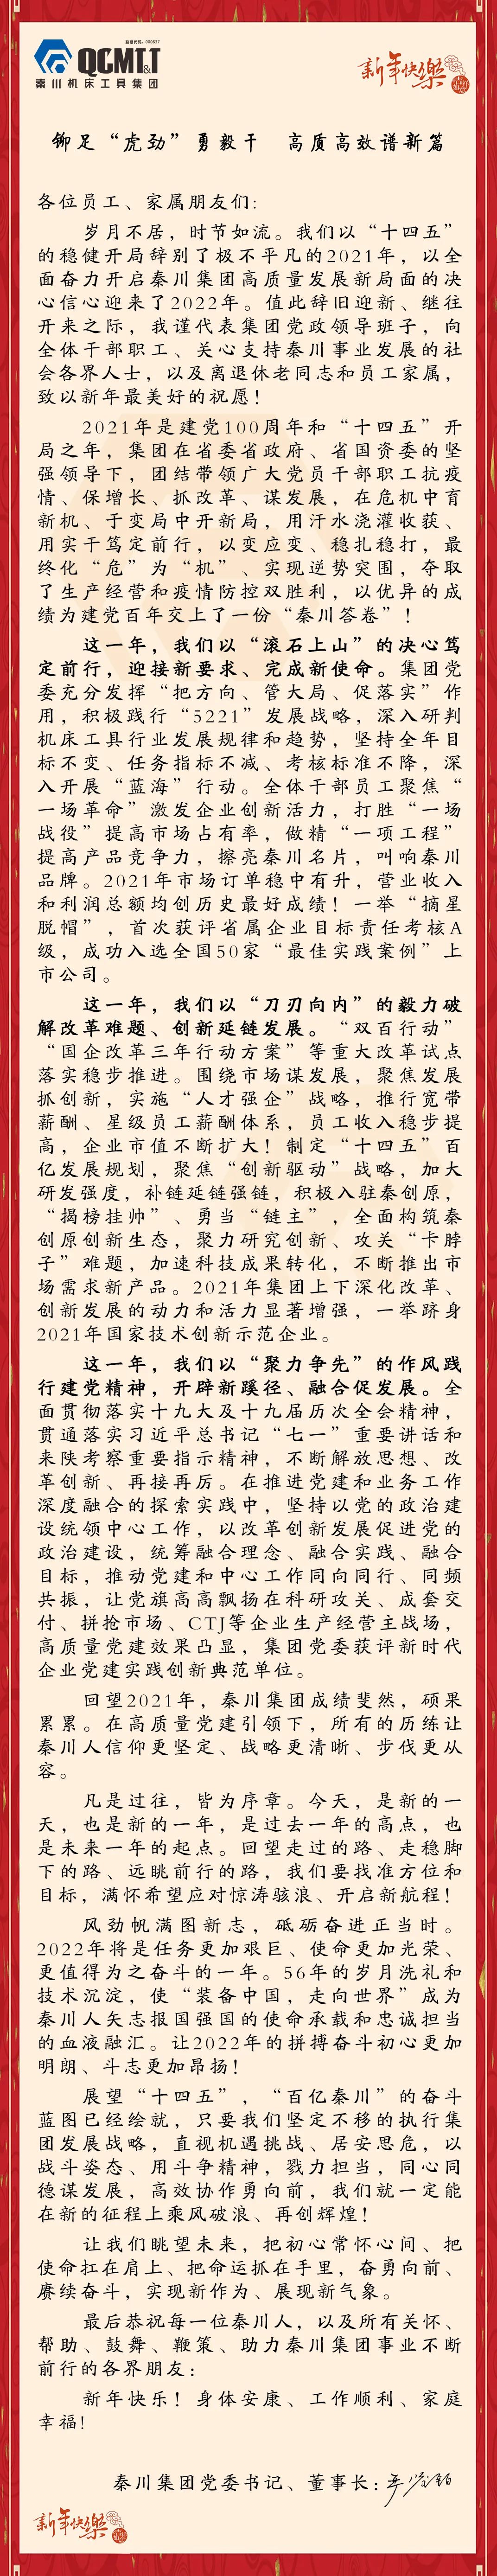 股票代码：000837
QCMTT&T
秦川机床工具集团
新年快樂
铆足“虎劲”勇毅干 高质高效谱新篇
各位员工、家属朋友们:
岁月不居，时节如流。我们以“十四五”
的稳健开局辞别了极不平凡的2021年，以全
面奋力开启秦川集团高质量发展新局面的决
心信心迎来了2022年。值此辞旧迎新、继往
开来之际，我谨代表集团党政领导班子，向
全体干部职工、关心支持秦川事业发展的社
会各界人士，以及离退休老同志和员工家属，
致以新年最美好的祝愿！
2021年是建党100周年和“十四五”开
局之年，集团在省委省政府、省国资委的坚
强领导下，团结带领广大党员干部职工抗疫
情、保增长、抓改革、谋发展，在危机中育
新机、于变局中开新局，用汗水浇灌收获、
用实干笃定前行，以变应变、稳扎稳打，最
终化“危”为“机”、实现逆势突围，夺取
了生产经营和疫情防控双胜利，以优异的成
绩为建党百年交上了一份“秦川答卷”！
这一年，我们以“滚石上山”的决心笃
定前行，迎接新要求、完成新使命。集团党
委充分发挥“把方向、管大局、促落实”作
用，积极践行“5221”发展战略，深入研判
机床工具行业发展规律和趋势，坚持全年目
标不变、任务指标不减、考核标准不降，深
入开展“蓝海”行动。全体干部员工聚焦“
一场革命”激发企业创新活力，打胜“一场
战役”提高市场占有率，做精“一项工程”
提高产品竞争力，擦亮秦川名片，叫响秦川
品牌。2021年市场订单稳中有升，营业收入
和利润总额均创历史最好成绩！一举“摘星
脱帽”，首次获评省属企业目标责任考核A
级，成功入选全国50家“最佳实践案例”上
市公司。
这一年，我们以“刀刃向内”的毅力破
解改革难题、创新延链发展。“双百行动”
“国企改革三年行动方案”等重大改革试点
落实稳步推进。围绕市场谋发展，聚焦发展
抓创新，实施“人才强企”战略，推行宽带
薪酬、星级员工薪酬体系，员工收入稳步提
高，企业市值不断扩大！制定“十四五”百
亿发展规划，聚焦“创新驱动”战略，加大
研发强度，补链延链强链，积极入驻秦创原，
“揭榜挂帅”、勇当“链主”，全面构筑秦
创原创新生态，聚力研究创新、攻关“卡脖
子”难题，加速科技成果转化，不断推出市
场需求新产品。2021年集团上下深化改革、
创新发展的动力和活力显著增强，一举跻身
2021年国家技术创新示范企业。
这一年，我们以“聚力争先”的作风践
行建党精神，开辟新蹊径、融合促发展。全
面贯彻落实十九大及十九届历次全会精神，
贯通落实习近平总书记“七一”重要讲话和
来陕考察重要指示精神，不断解放思想、改
革创新、再接再厉。在推进党建和业务工作
深度融合的探索实践中，坚持以党的政治建
设统领中心工作，以改革创新发展促进党的
政治建设，统筹融合理念、融合实践、融合
目标，推动党建和中心工作同向同行、同频
共振，让党旗高高飘扬在科研攻关、成套交
付、拼抢市场、CTJ等企业生产经营主战场，
高质量党建效果凸显，集团党委获评新时代
企业党建实践创新典范单位。
回望2021年，秦川集团成绩斐然，硕果
累累。在高质量党建引领下，所有的历练让
秦川人信仰更坚定、战略更清晰、步伐更从
容。
凡是过往，皆为序章。今天，是新的一
天，也是新的一年，是过去一年的高点，也
是未来一年的起点。回望走过的路、走稳脚
下的路、远眺前行的路，我们要找准方位和
目标，满怀希望应对惊涛骇浪、开启新航程！
风劲帆满图新志，砥砺奋进正当时。
2022年将是任务更加艰巨、使命更加光荣、
更值得为之奋斗的一年。56年的岁月洗礼和
技术沉淀，使“装备中国，走向世界”成为
秦川人矢志报国强国的使命承载和忠诚担当
的血液融汇。让2022年的拼搏奋斗初心更加
明朗、斗志更加昂扬！
展望“十四五”，“百亿秦川”的奋斗
蓝图已经绘就，只要我们坚定不移的执行集
团发展战略，直视机遇挑战、居安思危，以
战斗姿态、用斗争精神，戮力担当，同心同
德谋发展，高效协作勇向前，我们就一定能
在新的征程上乘风破浪、再创辉煌！
让我们眺望未来，把初心常怀心间、把
使命扛在肩上、把命运抓在手里，奋勇向前、
赓续奋斗，实现新作为、展现新气象。
最后恭祝每一位秦川人，以及所有关怀、
帮助、鼓舞、鞭策、助力秦川集团事业不断
前行的各界朋友：
新年快乐！身体安康、工作顺利、家庭
幸福!
秦川集团党委书记、董事长:
新年快樂